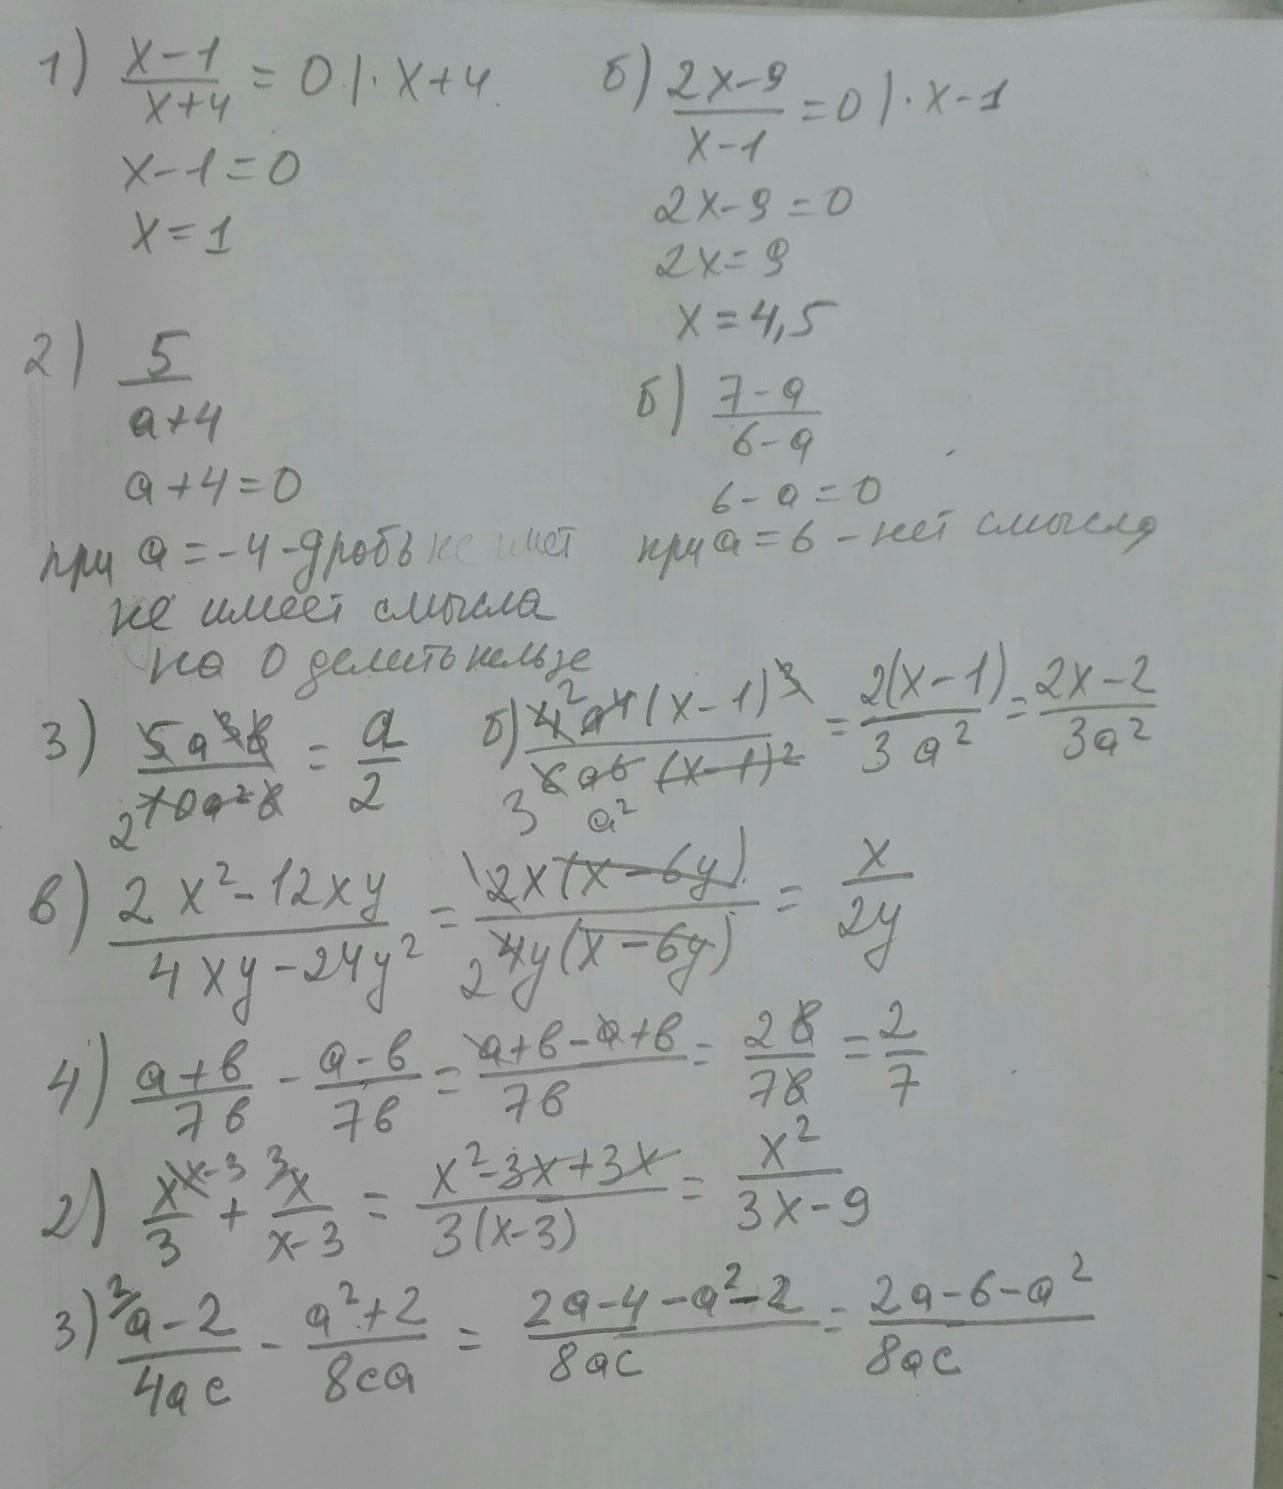 1) (x-1)/(x+4) = 0 |· x+4
x-1=0
x=1
б) (2x-9)/(x-1) = 0 |· x-1
2x-9=0
2x=9
x=4,5
2) 5/(a+4)
a+4=0
при a=-4-дробь не имет
не имеет смысла
на 0 делить нельзя
б) (7-a)/(6-a)
6-a=0
при a=6 - нет смысла
3) 5a³в/10a²в = a/2
2
б) 4a⁴(x-1)³/6a⁶(x-1)² = 2(x-1)/3a² = (2x-2)/3a²
2
3 a²
в) (2x²-12xy)/(4xy-24y²) = 2x(x-6y)/4y(x-6y) = x/2y
2
4) (a+в)/7в - (a-в)/7в = (a+в-a+в)/7в = 2в/7в = 2/7
2) x/3 + x/(x-3) = (x²-3x+3x)/3(x-3) = x²/(3x-9)
x-3 3
3) (a-2)/4ac - (a²+2)/8ca = (2a-4-a²-2)/8ac = (2a-6-a²)/8ac
2